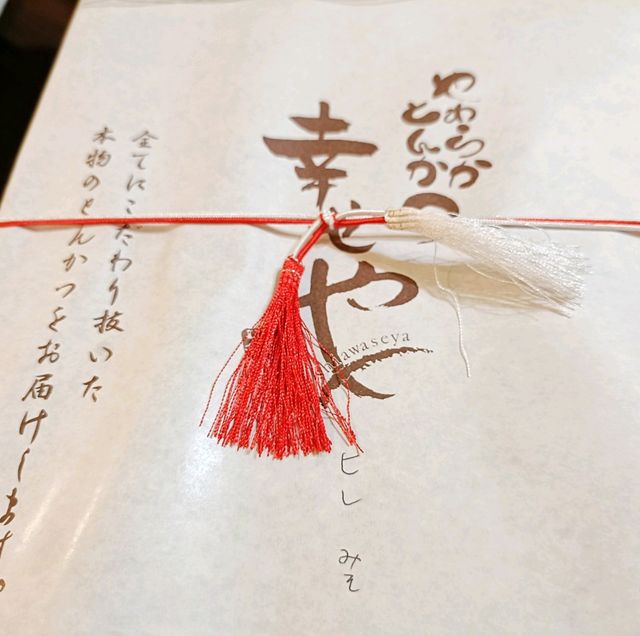 やわらか
とんかつ
幸せや
shiawaseya
全てにこだわり抜いた
本物のとんかつをお届けします。
ヒレ みそ